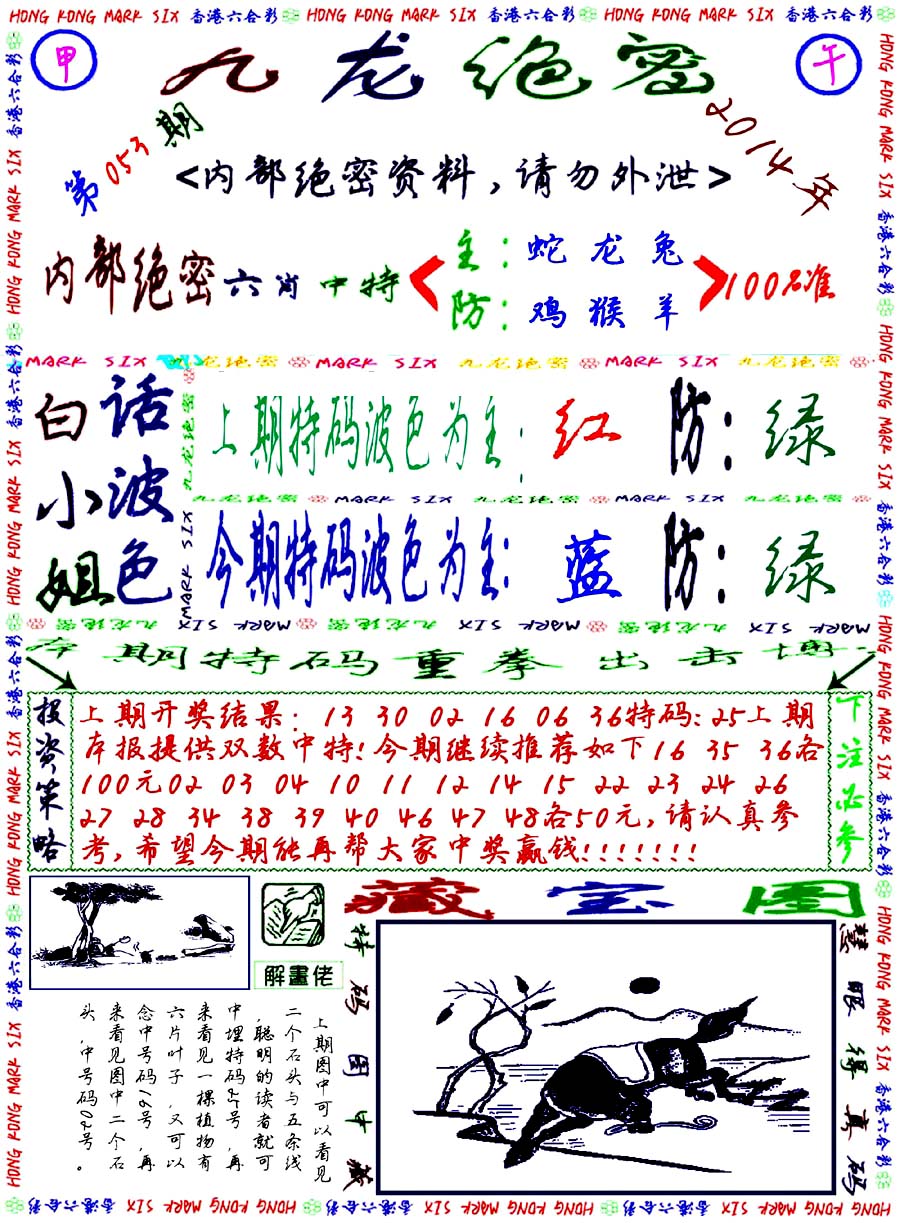 HONG KONG MARK SIX 香港六合彩 HONG KONG MARK SIX 香港六合彩 HONG KONG MARK SIX 香港六合彩
甲
九龙绝密
午
第053期
2014年
<内部绝密资料,请勿外泄>
内部绝密六肖中特
主:蛇龙兔
防:鸡猴羊
100%准
MARK SIX 九龙绝密 MARK SIX 九龙绝密 MARK SIX 九龙绝密
白小姐
话波色
上期特码波色为主:红 防:绿
九龙绝密 MARK SIX 九龙绝密 MARK SIX 九龙绝密
今期特码波色为主:蓝 防:绿
九龙绝密 MARK SIX
MARK SIX 九龙绝密 MARK SIX 九龙绝密 MARK SIX 九龙绝密
本期特码重拳出击博
投资策略
上期开奖结果:13 30 02 16 06 36特码:25上期
本报提供双数中特!今期继续推荐如下16 35 36各
100元02 03 04 10 11 12 14 15 22 23 24 26
27 28 34 38 39 40 46 47 48各50元,请认真参
考,希望今期能再帮大家中奖赢钱!!!!!!!
下注必参
解畫佬
藏宝图
特码图中藏
慧眼得真码
上期图中可以看见
二个石头与五条线
,聪明的读者就可
中埋特码25号,再
来看见一棵植物有
六片叶子 又可以
念中号码16号,再
来看见图中二个石
头,中号码02号。
HONG KONG MARK SIX 香港六合彩 HONG KONG MARK SIX 香港六合彩 HONG KONG MARK SIX 香港六合彩